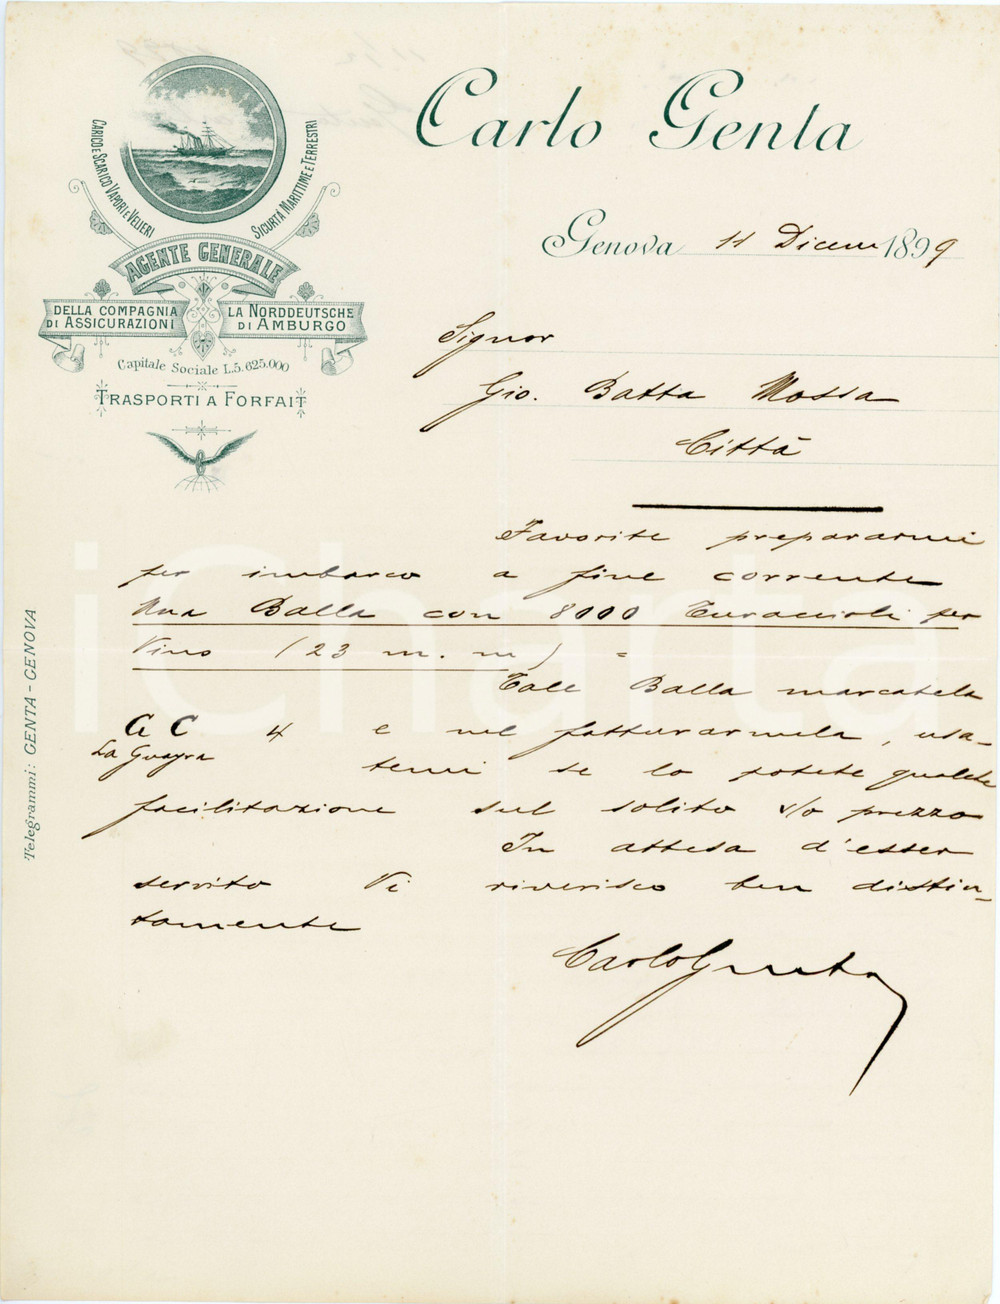 Carlo Genta
CARICO E SCARICO VAPORI E VELIERI
SICURTÀ MARITTIME E TERRESTRI
AGENTE GENERALE
DELLA COMPAGNIA DI ASSICURAZIONI
LA NORDDEUTSCHE DI AMBURGO
Capitale Sociale L. 5.625.000
TRASPORTI A FORFAIT
Telegrammi: GENTA - GENOVA
Genova 11 Dicem 1899
Signor
Gio. Batta Mossa
Città
Favorite prepararmi
per imbarco a fine corrente
Una Balla con 8000 Turaccioli per
Vino (23 m.m) =
Tale Balla marcatela
G C 4 e nel fatturarmela, usa-
La Guayra temi se lo potete qualche
facilitazione sul solito v/o prezzo
In attesa d'esser
servito Vi riverisco ben distin-
tamente
Carlo Genta
iCharta